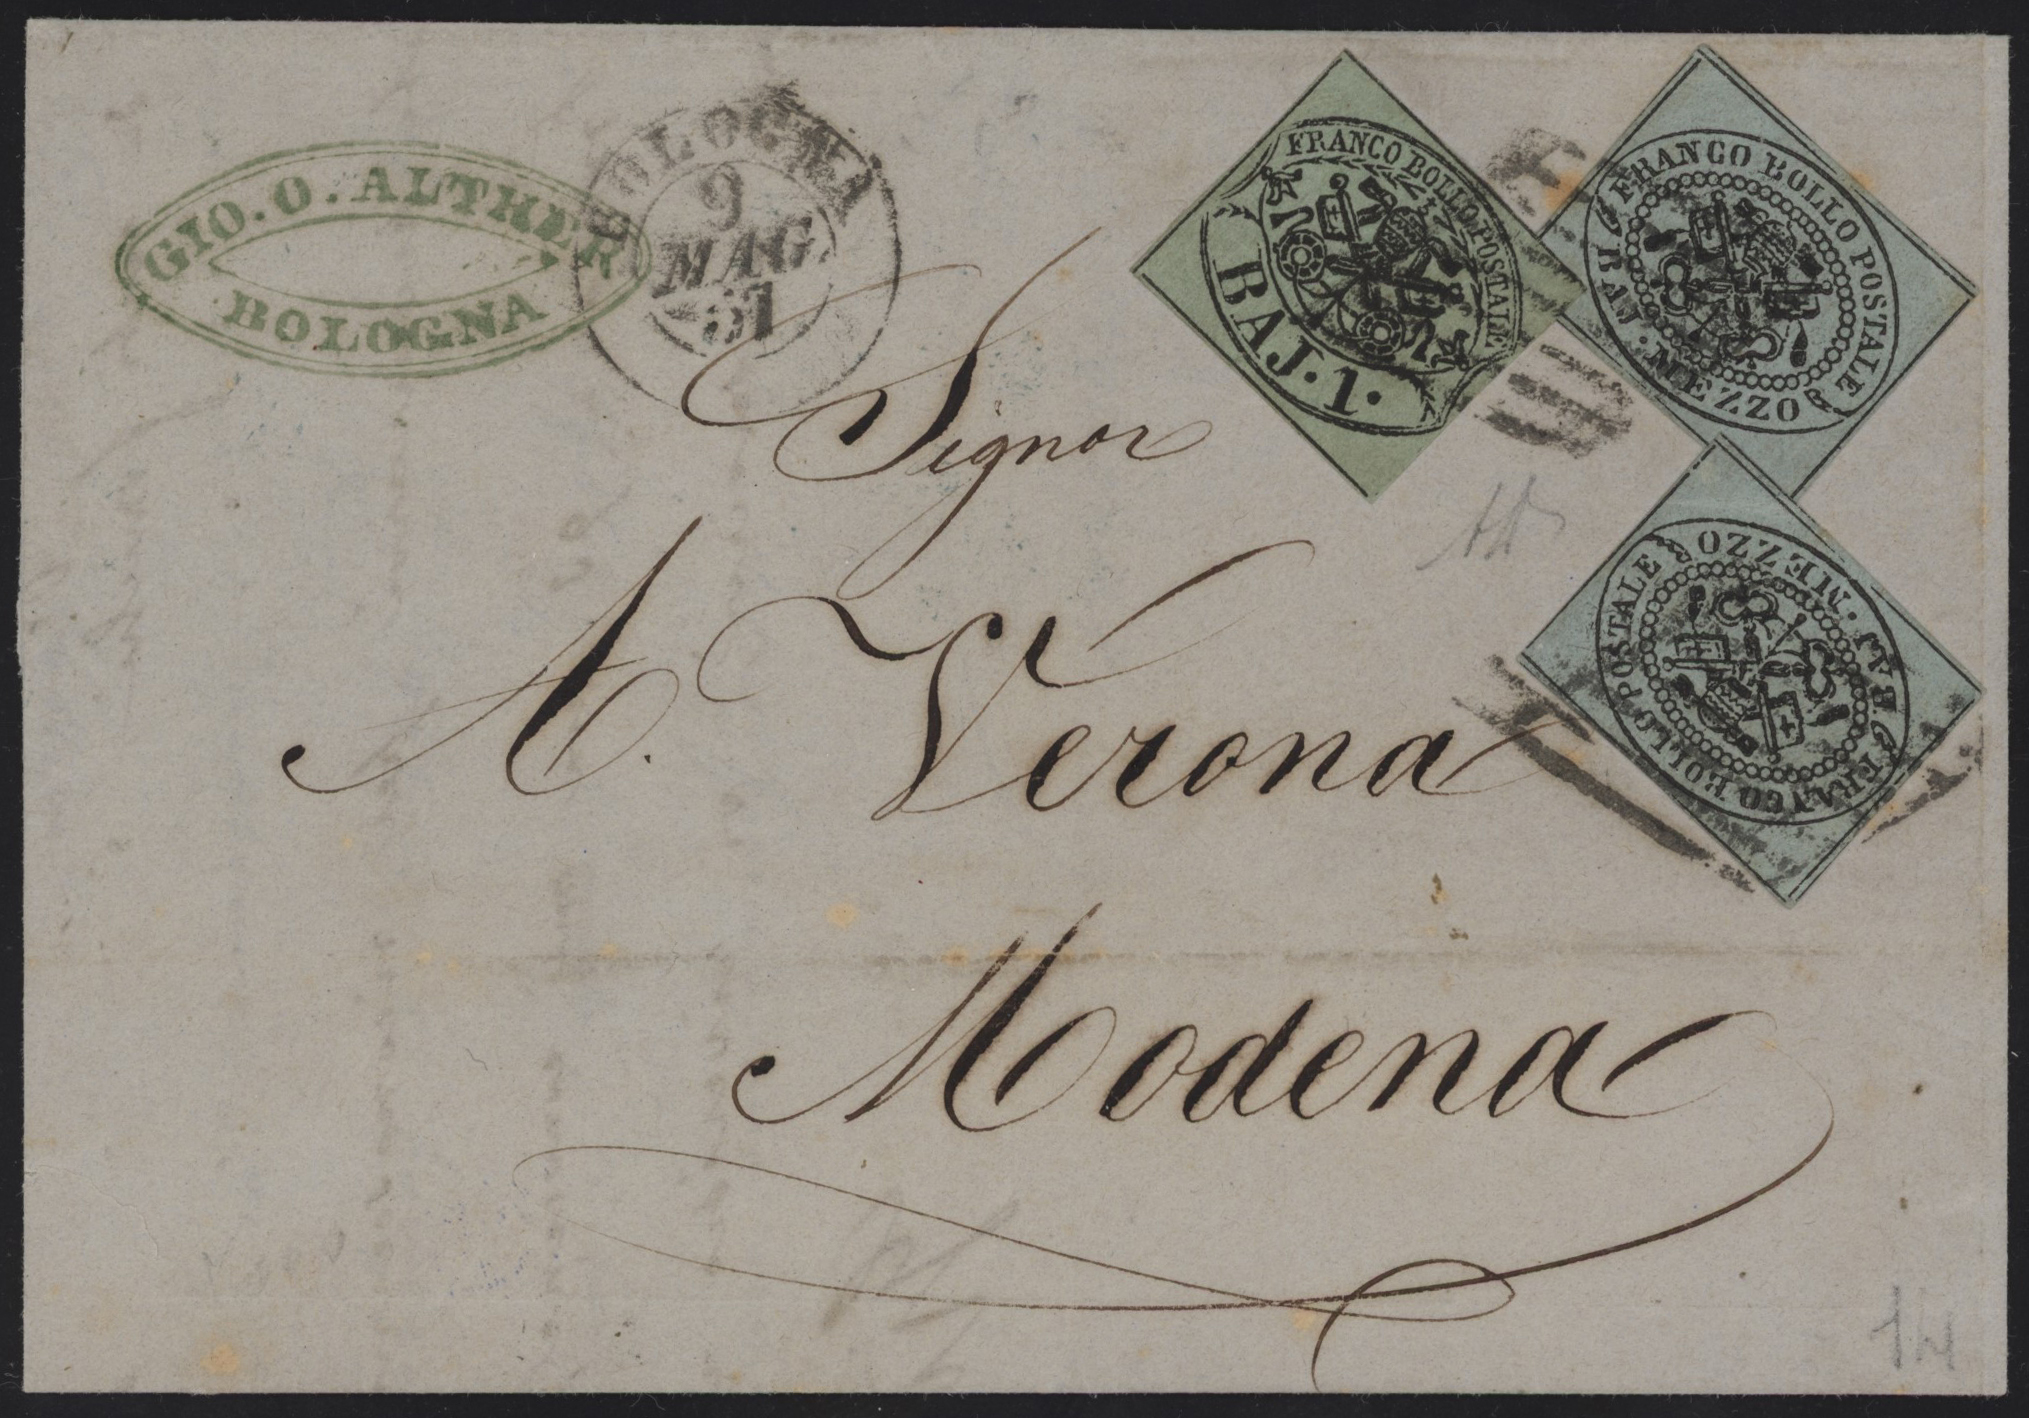 GIO. O. ALTHER
BOLOGNA
BOLOGNA
9
MAG.
57
FRANCO BOLLO POSTALE
BAJ. 1.
FRANCO BOLLO POSTALE
MEZZO BAJ.
FRANCO BOLLO POSTALE
MEZZO BAJ.
Signor
A. Verona
Modena